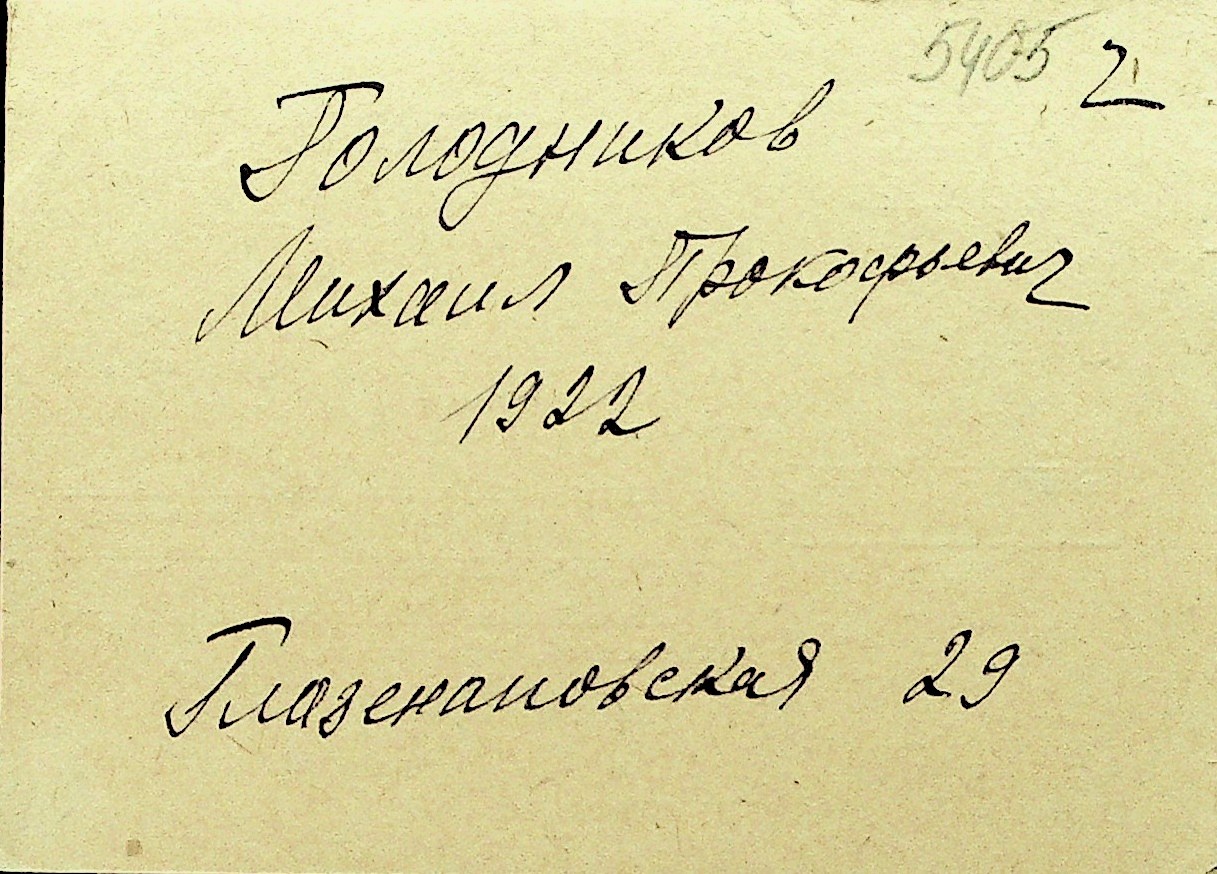 5405 2
Голодников
Михаил Прокофьевич
1922
Глазенаповская 29